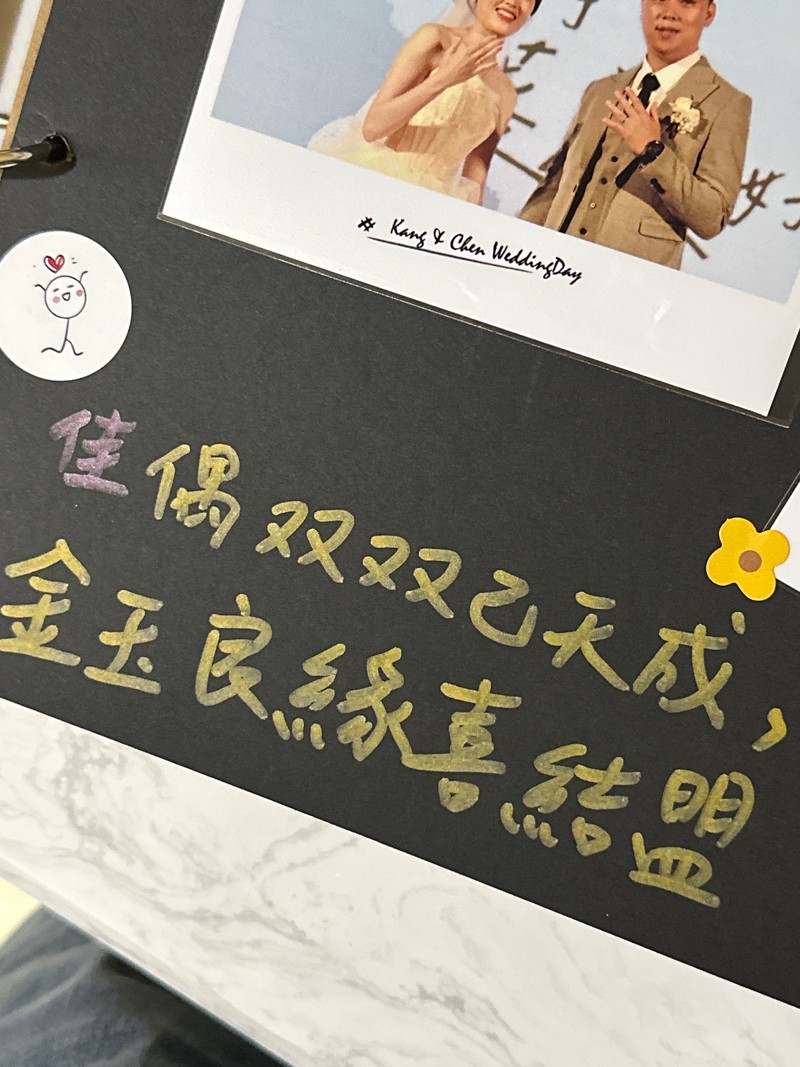 # Kang & Chen WeddingDay
佳偶双双己天成，
金玉良緣喜結盟